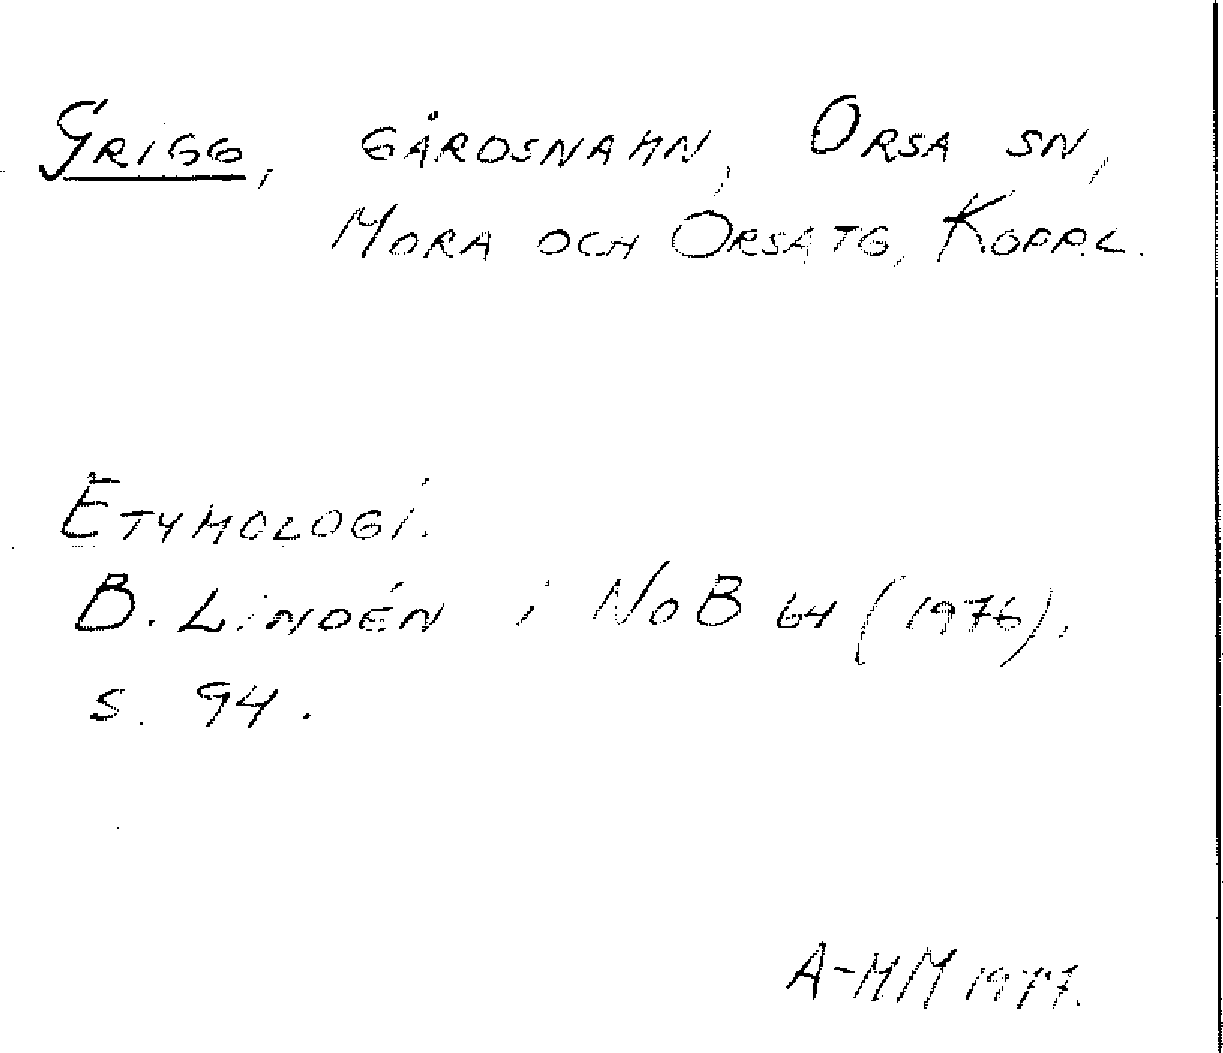 GRIGG, GÅRDSNAMN, ORSA SN,
MORA OCH ORSA TG, KOPP.L.
ETYMOLOGI.
B. LINDÉN i NoB 64 (1976),
S. 94.
A-MM 1977.